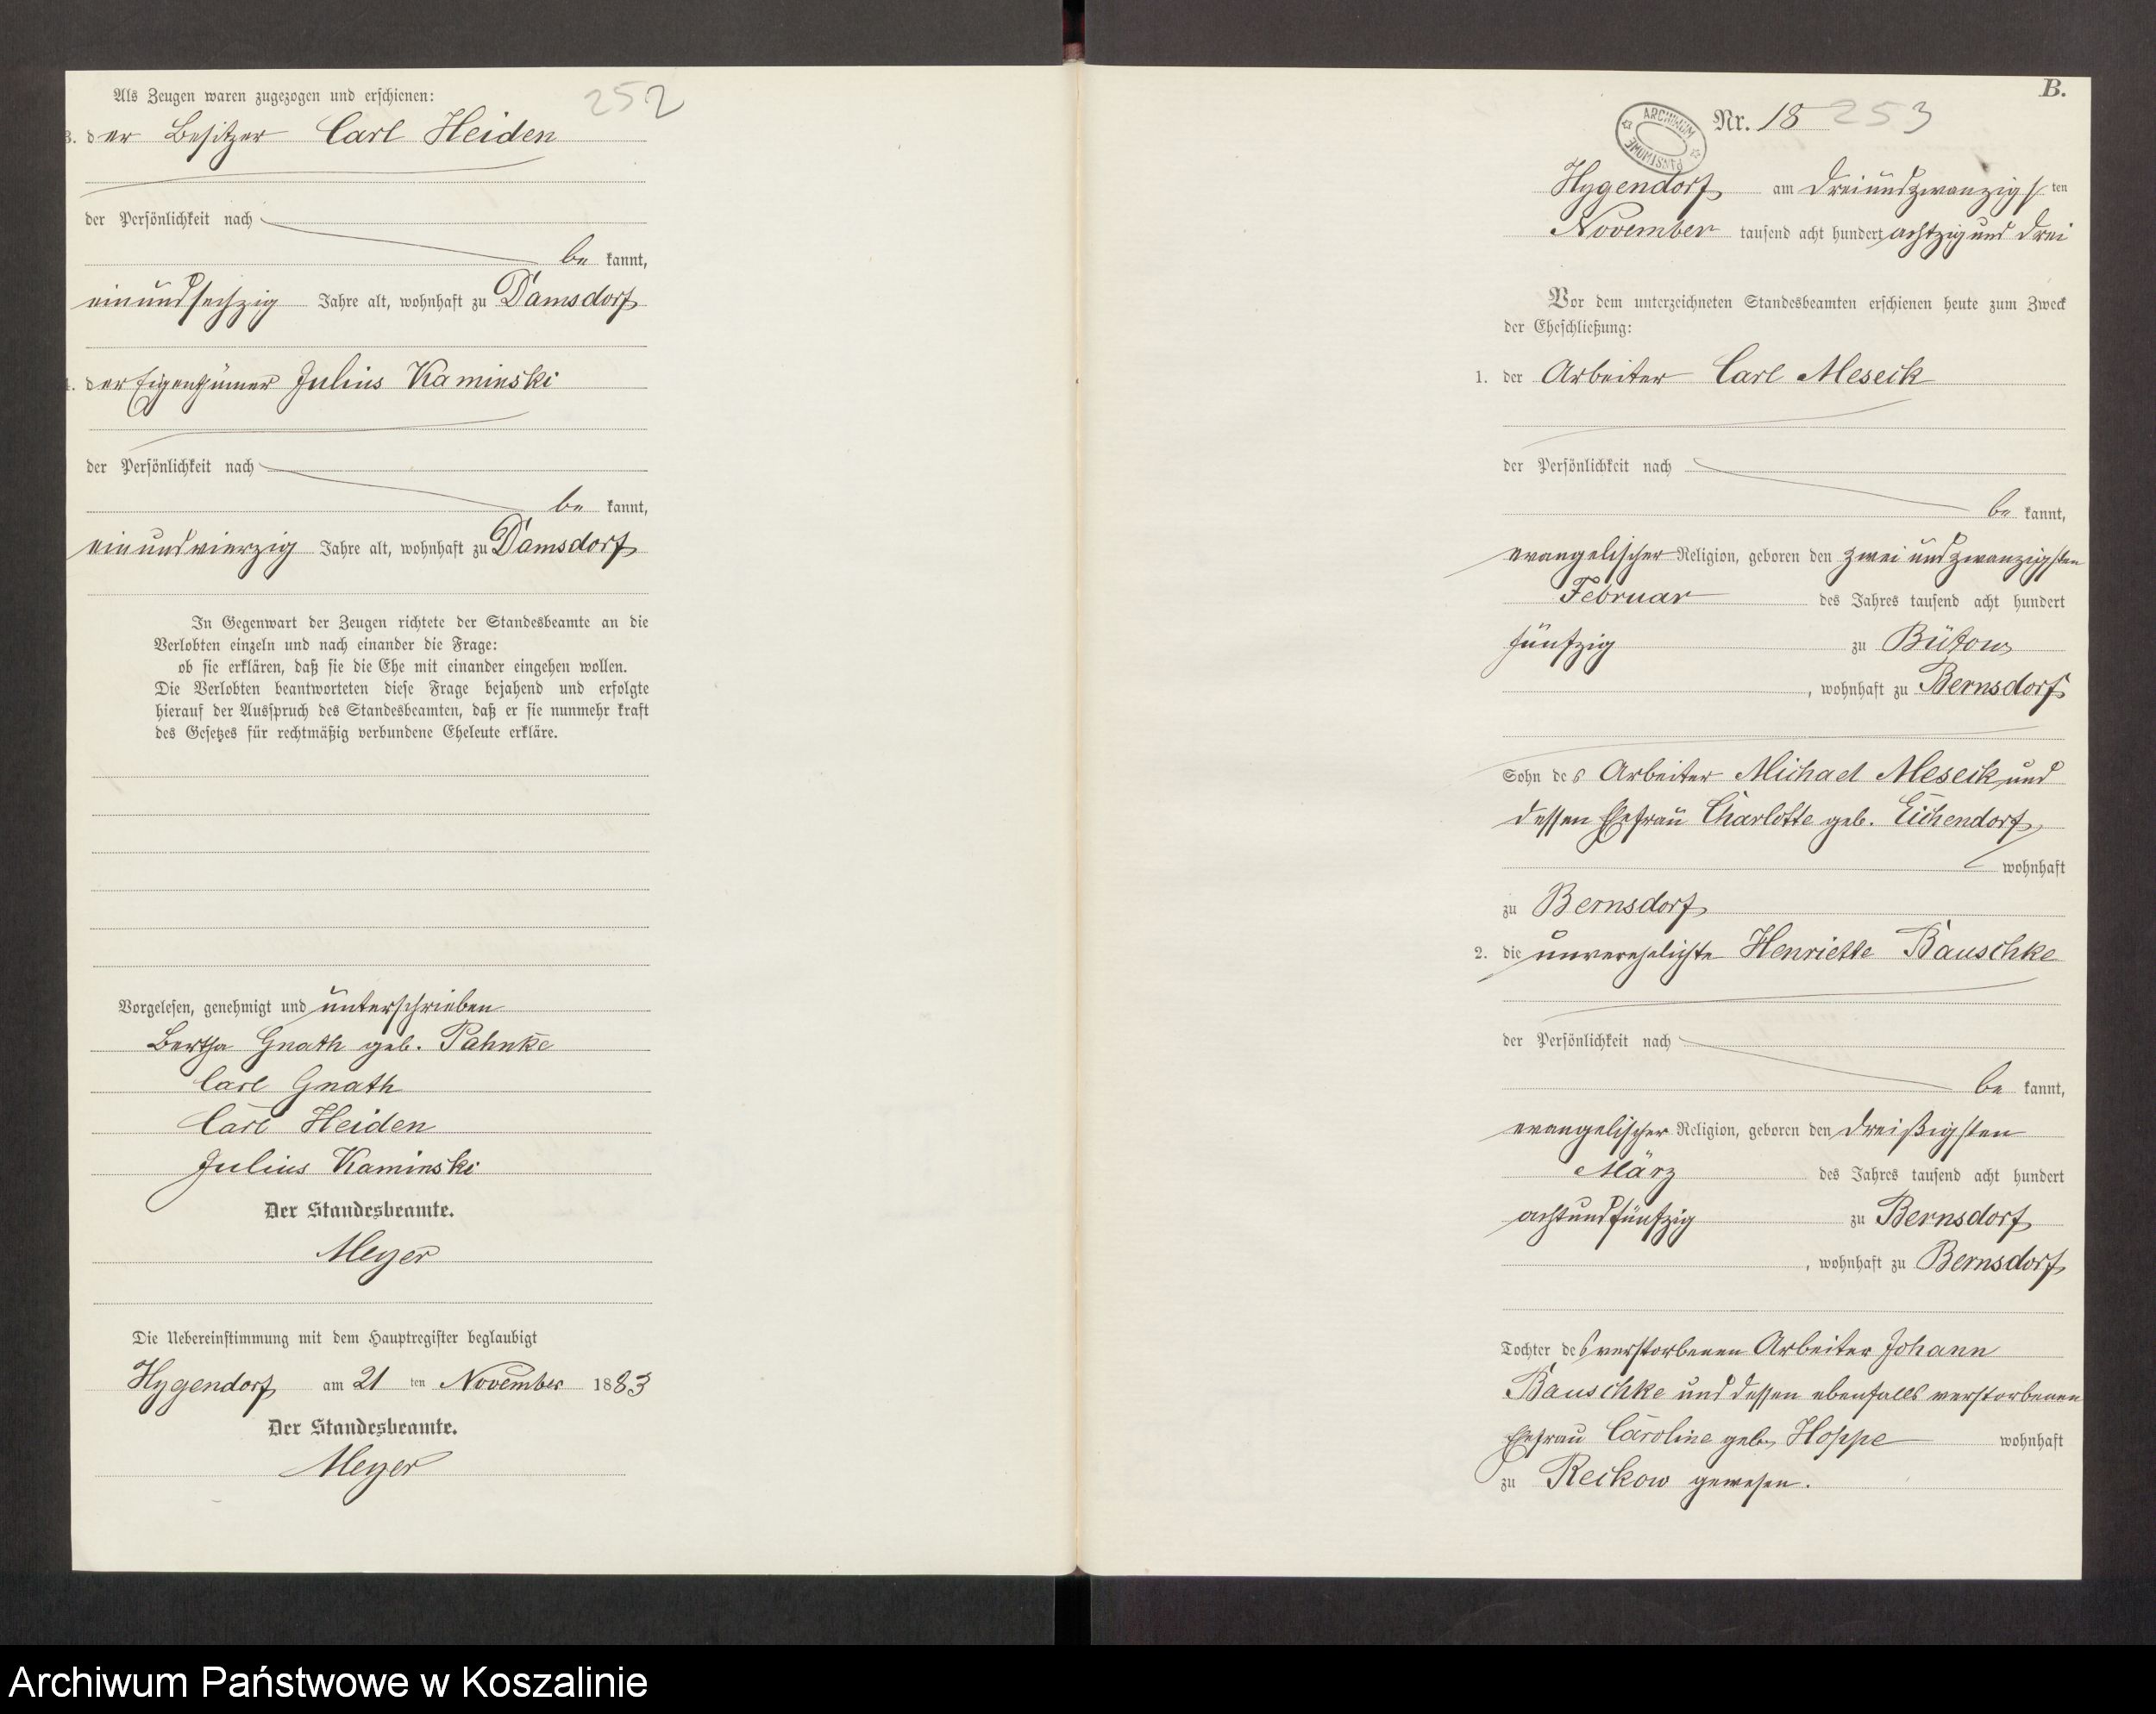 252
Als Zeugen waren zugezogen und erschienen:
3. der Besitzer Carl Heiden
der Persönlichkeit nach
be kannt,
einundsechzig Jahre alt, wohnhaft zu Damsdorf
4. der Eigenthümer Julius Kaminski
der Persönlichkeit nach
be kannt,
einundvierzig Jahre alt, wohnhaft zu Damsdorf
In Gegenwart der Zeugen richtete der Standesbeamte an die
Verlobten einzeln und nach einander die Frage:
ob sie erklären, daß sie die Ehe mit einander eingehen wollen.
Die Verlobten beantworteten diese Frage bejahend und erfolgte
hierauf der Ausspruch des Standesbeamten, daß er sie nunmehr kraft
des Gesetzes für rechtmäßig verbundene Eheleute erkläre.
Vorgelesen, genehmigt und unterschrieben
Bertha Gnath geb. Pahnke
Carl Gnath
Carl Heiden
Julius Kaminski
Der Standesbeamte.
Meyer
Die Uebereinstimmung mit dem Hauptregister beglaubigt
Hygendorf am 21 ten November 1883
Der Standesbeamte.
Meyer
B.
ARCHIWUM PAŃSTWOWE
Nr. 18 253
Hygendorf am dreiundzwanzigsten
November tausend acht hundert achtzig und drei
Vor dem unterzeichneten Standesbeamten erschienen heute zum Zweck
der Eheschließung:
1. der Arbeiter Carl Meseck
der Persönlichkeit nach
be kannt,
evangelischer Religion, geboren den zwei und zwanzigsten
Februar des Jahres tausend acht hundert
fünfzig zu Bütow
, wohnhaft zu Bernsdorf
Sohn des Arbeiter Michael Meseck und
dessen Ehefrau Charlotte geb. Eichendorf
wohnhaft
zu Bernsdorf
2. die unverehelichte Henriette Bauschke
der Persönlichkeit nach
be kannt,
evangelischer Religion, geboren den dreißigsten
März des Jahres tausend acht hundert
achtundfünfzig zu Bernsdorf
, wohnhaft zu Bernsdorf
Tochter des verstorbenen Arbeiter Johann
Bauschke und dessen ebenfalls verstorbenen
Ehefrau Caroline geb. Hoppe wohnhaft
zu Reckow gewesen.
Archiwum Państwowe w Koszalinie